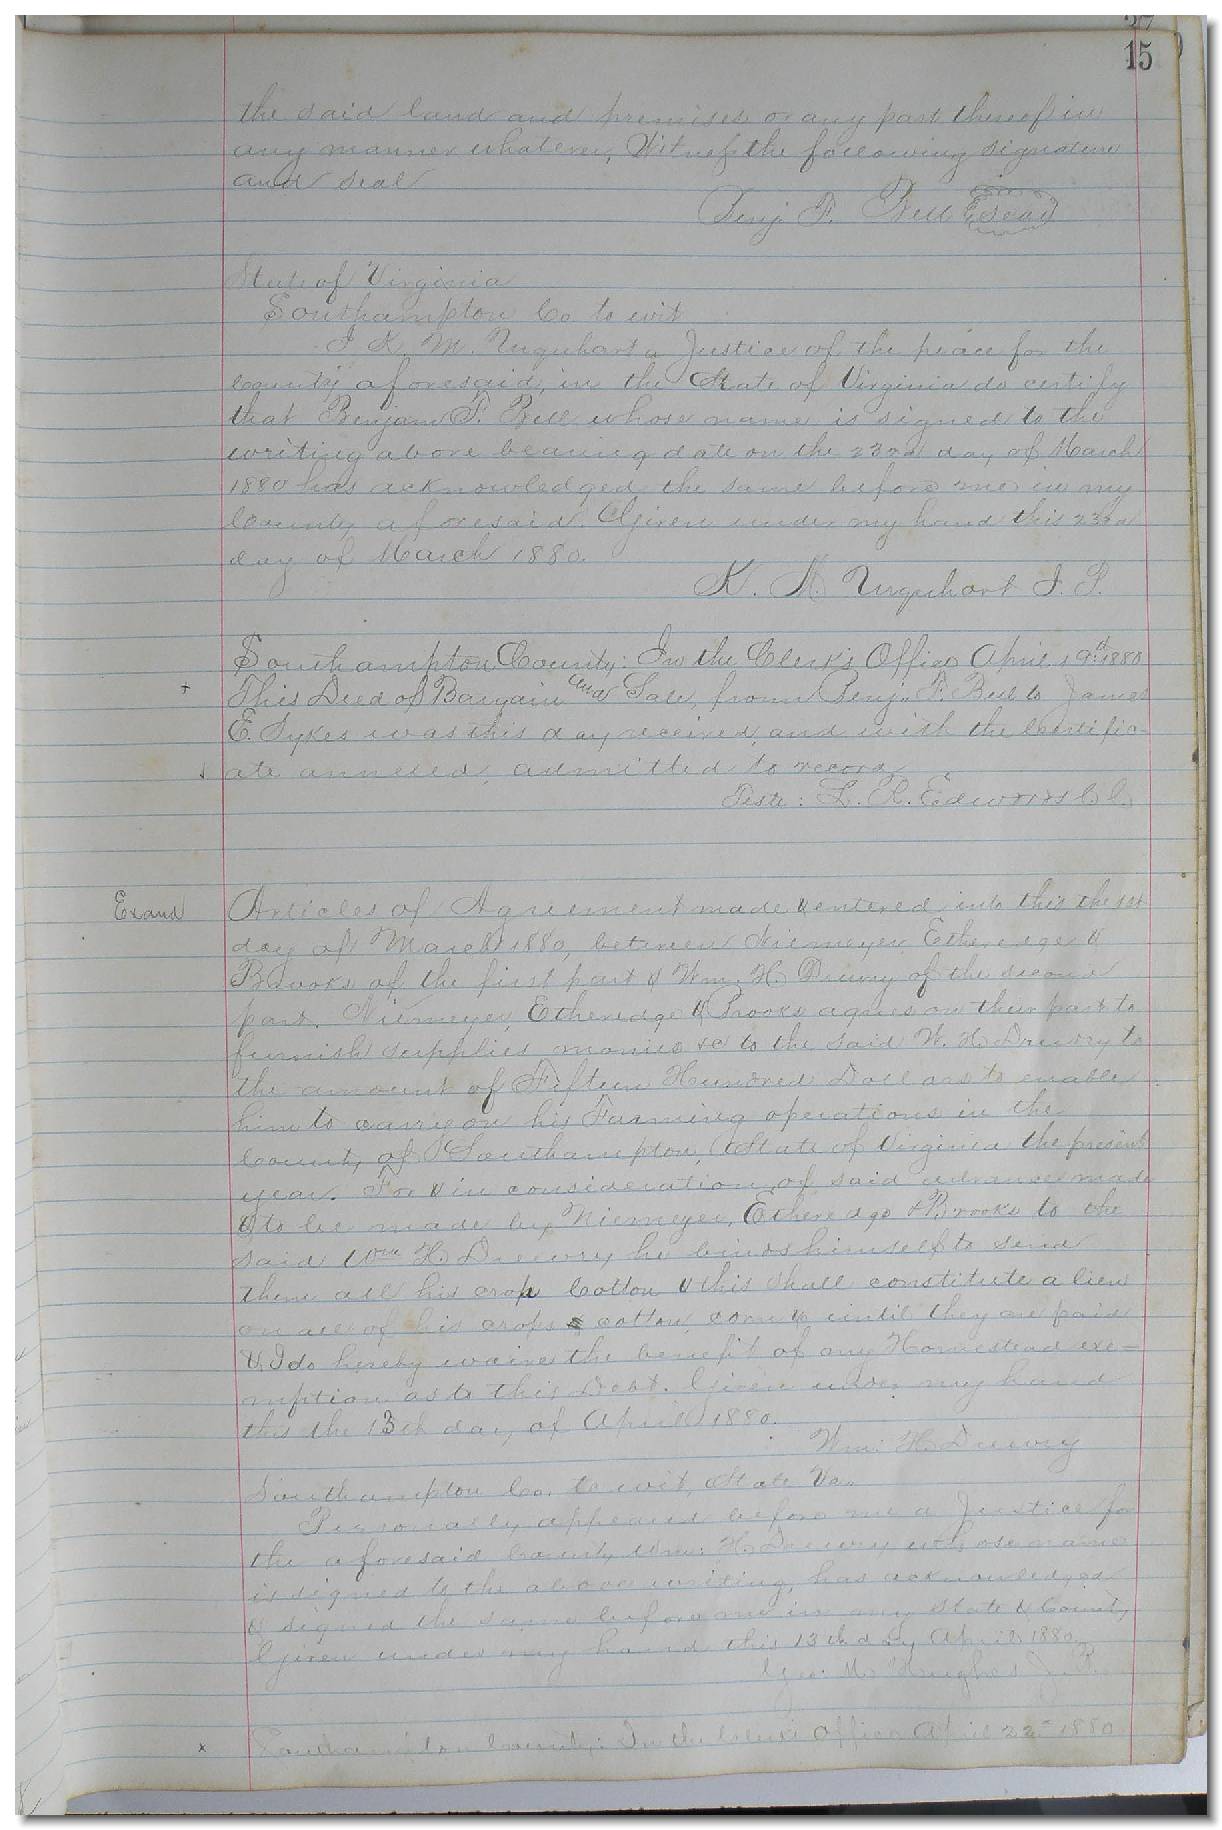 15
the said land and premises or any part thereof in
any manner whatever, Witness the following signature
and seal
Benj. F. Bell Seal
State of Virginia
Southampton Co to wit
I K. M. Urquhart a Justice of the peace for the
County aforesaid, in the State of Virginia do certify
that Benjam F. Bell whose name is signed to the
writing above bearing date on the 23rd day of March
1880 has acknowledged the same before me in my
County aforesaid. Given under my hand this 23rd
day of March 1880.
K. M. Urquhart J. P.
Southampton County: In the Clerk's Office April 19th 1880
This Deed of Bargain and Sale, from Benj. F. Bell to James
E. Sykes was this day received, and with the Certific-
ate annexed, admitted to record
Teste: L. R. Edwards C. C.
Exand
Articles of Agreement made & entered into this the 1st
day of March 1880, between Niemeyer, Etheredge &
Brooks of the first part & Wm. H. Drewry of the second
part. Niemeyer, Etheredge & Brooks agrees on their part to
furnish supplies monies &c to the said W. H. Drewry to
the amount of Fifteen Hundred Dollars to enable
him to carry on his Farming operations in the
County of Southampton, State of Virginia the present
year. For & in consideration of said advance made
& to be made by Niemeyer, Etheredge & Brooks to the
said Wm H. Drewry he binds himself to send
them all his crop Cotton & this shall constitute a lien
on all of his crops cotton, corn & until they are paid
& I do hereby waive the benefit of any Homestead exe-
mption as to this Debt. Given under my hand
this the 13th day of April 1880.
Wm. H. Drewry
Southampton Co. to wit, State Va.
Personally appeared before me a Justice for
the aforesaid County Wm. H. Drewry whose name
is signed to the above writing, has acknowledged
& signed the same before me in my State & County,
Given under my hand this 13th day April 1880.
Geo. M. Hughes J. P.
x Southampton County: In the Clerk's Office April 22nd 1880